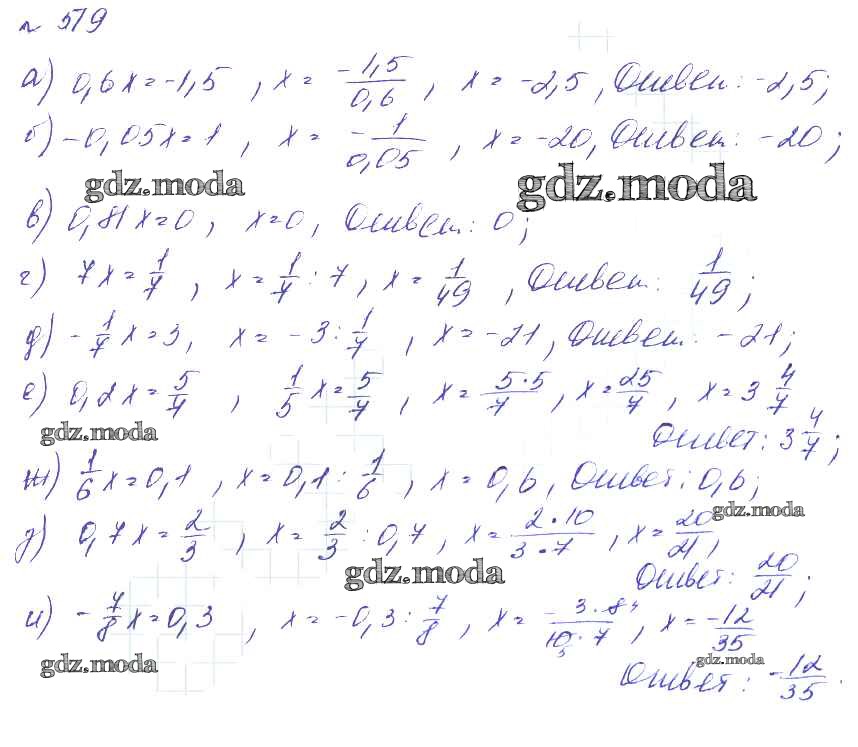 № 579
а) 0,6x=-1,5 , x= -1,5/0,6 , x= -2,5, Ответ: -2,5;
б) -0,05x=1 , x= -1/0,05 , x=-20, Ответ: -20;
gdz.moda gdz.moda
в) 0,81x=0 , x=0, Ответ: 0;
г) 7x=1/7 , x=1/7 : 7, x=1/49 , Ответ: 1/49;
д) -1/7x=3, x= -3:1/7 , x=-21, Ответ: -21;
е) 0,2x=5/7 , 1/5x=5/7 , x= 5·5/7 , x=25/7 , x=3 4/7
gdz.moda Ответ: 3 4/7;
ж) 1/6x=0,1 , x=0,1 : 1/6 , x=0,6, Ответ: 0,6;
gdz.moda
з) 0,7x=2/3 , x= 2/3 : 0,7 , x= 2·10/3·7 , x=20/21,
gdz.moda Ответ: 20/21;
и) -7/8x=0,3 , x=-0,3: 7/8 , x= -3·8⁴/10₅·7 , x=-12/35
gdz.moda gdz.moda
Ответ: -12/35.